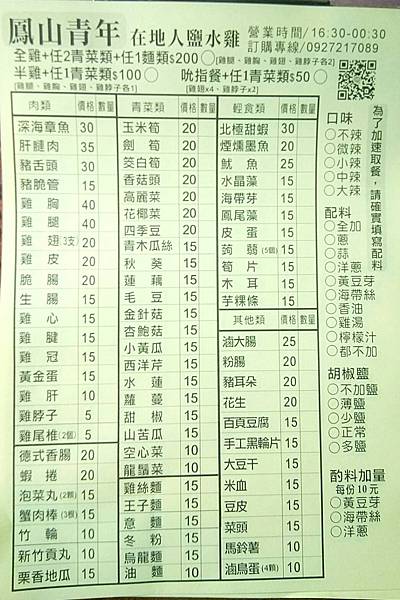 鳳山青年 在地人鹽水雞
營業時間/16:30-00:30
訂購專線/0927217089
全雞+任2青菜類+任1麵類$200○
(雞腿、雞胸、雞翅、雞脖子各2)
半雞+任1青菜類$100○
(雞腿、雞胸、雞翅、雞脖子各1)
吮指餐+任1青菜類$50○
(雞翅x4、雞脖子x2)
肉類 價格 數量
深海章魚 30
肝腱肉 35
豬舌頭 30
豬脆管 15
雞胸 40
雞腿 40
雞翅3支 20
雞皮 20
脆腸 20
生腸 20
雞心 15
雞腱 15
雞冠 15
黃金蛋 15
雞肝 10
雞脖子 5
雞尾椎(2個) 5
德式香腸 20
蝦捲 20
泡菜丸(2顆) 15
蟹肉棒(3根) 15
竹輪 10
新竹貢丸 10
栗香地瓜 15
青菜類 價格 數量
玉米筍 20
劍筍 20
茭白筍 20
香菇頭 20
高麗菜 20
花椰菜 20
四季豆 20
青木瓜絲 15
秋葵 15
蓮藕 15
毛豆 15
金針菇 15
杏鮑菇 15
小黃瓜 15
西洋芹 15
水蓮 15
蘿蔓 15
甜椒 15
山苦瓜 15
空心菜 10
龍鬚菜 10
雞絲麵 15
王子麵 15
意麵 15
冬粉 15
烏龍麵 15
油麵 10
輕食類 價格 數量
北極甜蝦 30
煙燻墨魚 20
魷魚 25
水晶藻 15
海帶芽 15
鳳尾藻 15
皮蛋 15
蒟蒻(5個) 15
筍片 15
木耳 15
芋粿條 15
其他類 價格 數量
滷大腸 25
粉腸 20
豬耳朵 20
花生 20
百頁豆腐 15
手工黑輪片 15
大豆干 15
米血 15
豆皮 15
菜頭 15
馬鈴薯 10
滷鳥蛋(4顆) 10
為了加速取餐，請確實填寫配料
口味
○不辣
○微辣
○小辣
○中辣
○大辣
配料
○全加
○蔥
○蒜
○洋蔥
○黃豆芽
○海帶絲
○香油
○雞湯
○檸檬汁
○都不加
胡椒鹽
○不加鹽
○薄鹽
○少鹽
○正常
○多鹽
酌料加量
每份10元
○黃豆芽
○海帶絲
○洋蔥